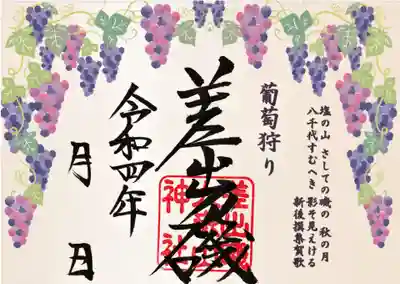 塩の山 さしての磯の 秋の月
八千代すむへき 影そ見えける
新後撰集賀歌
葡萄狩り
差出磯
令和四年
月 日